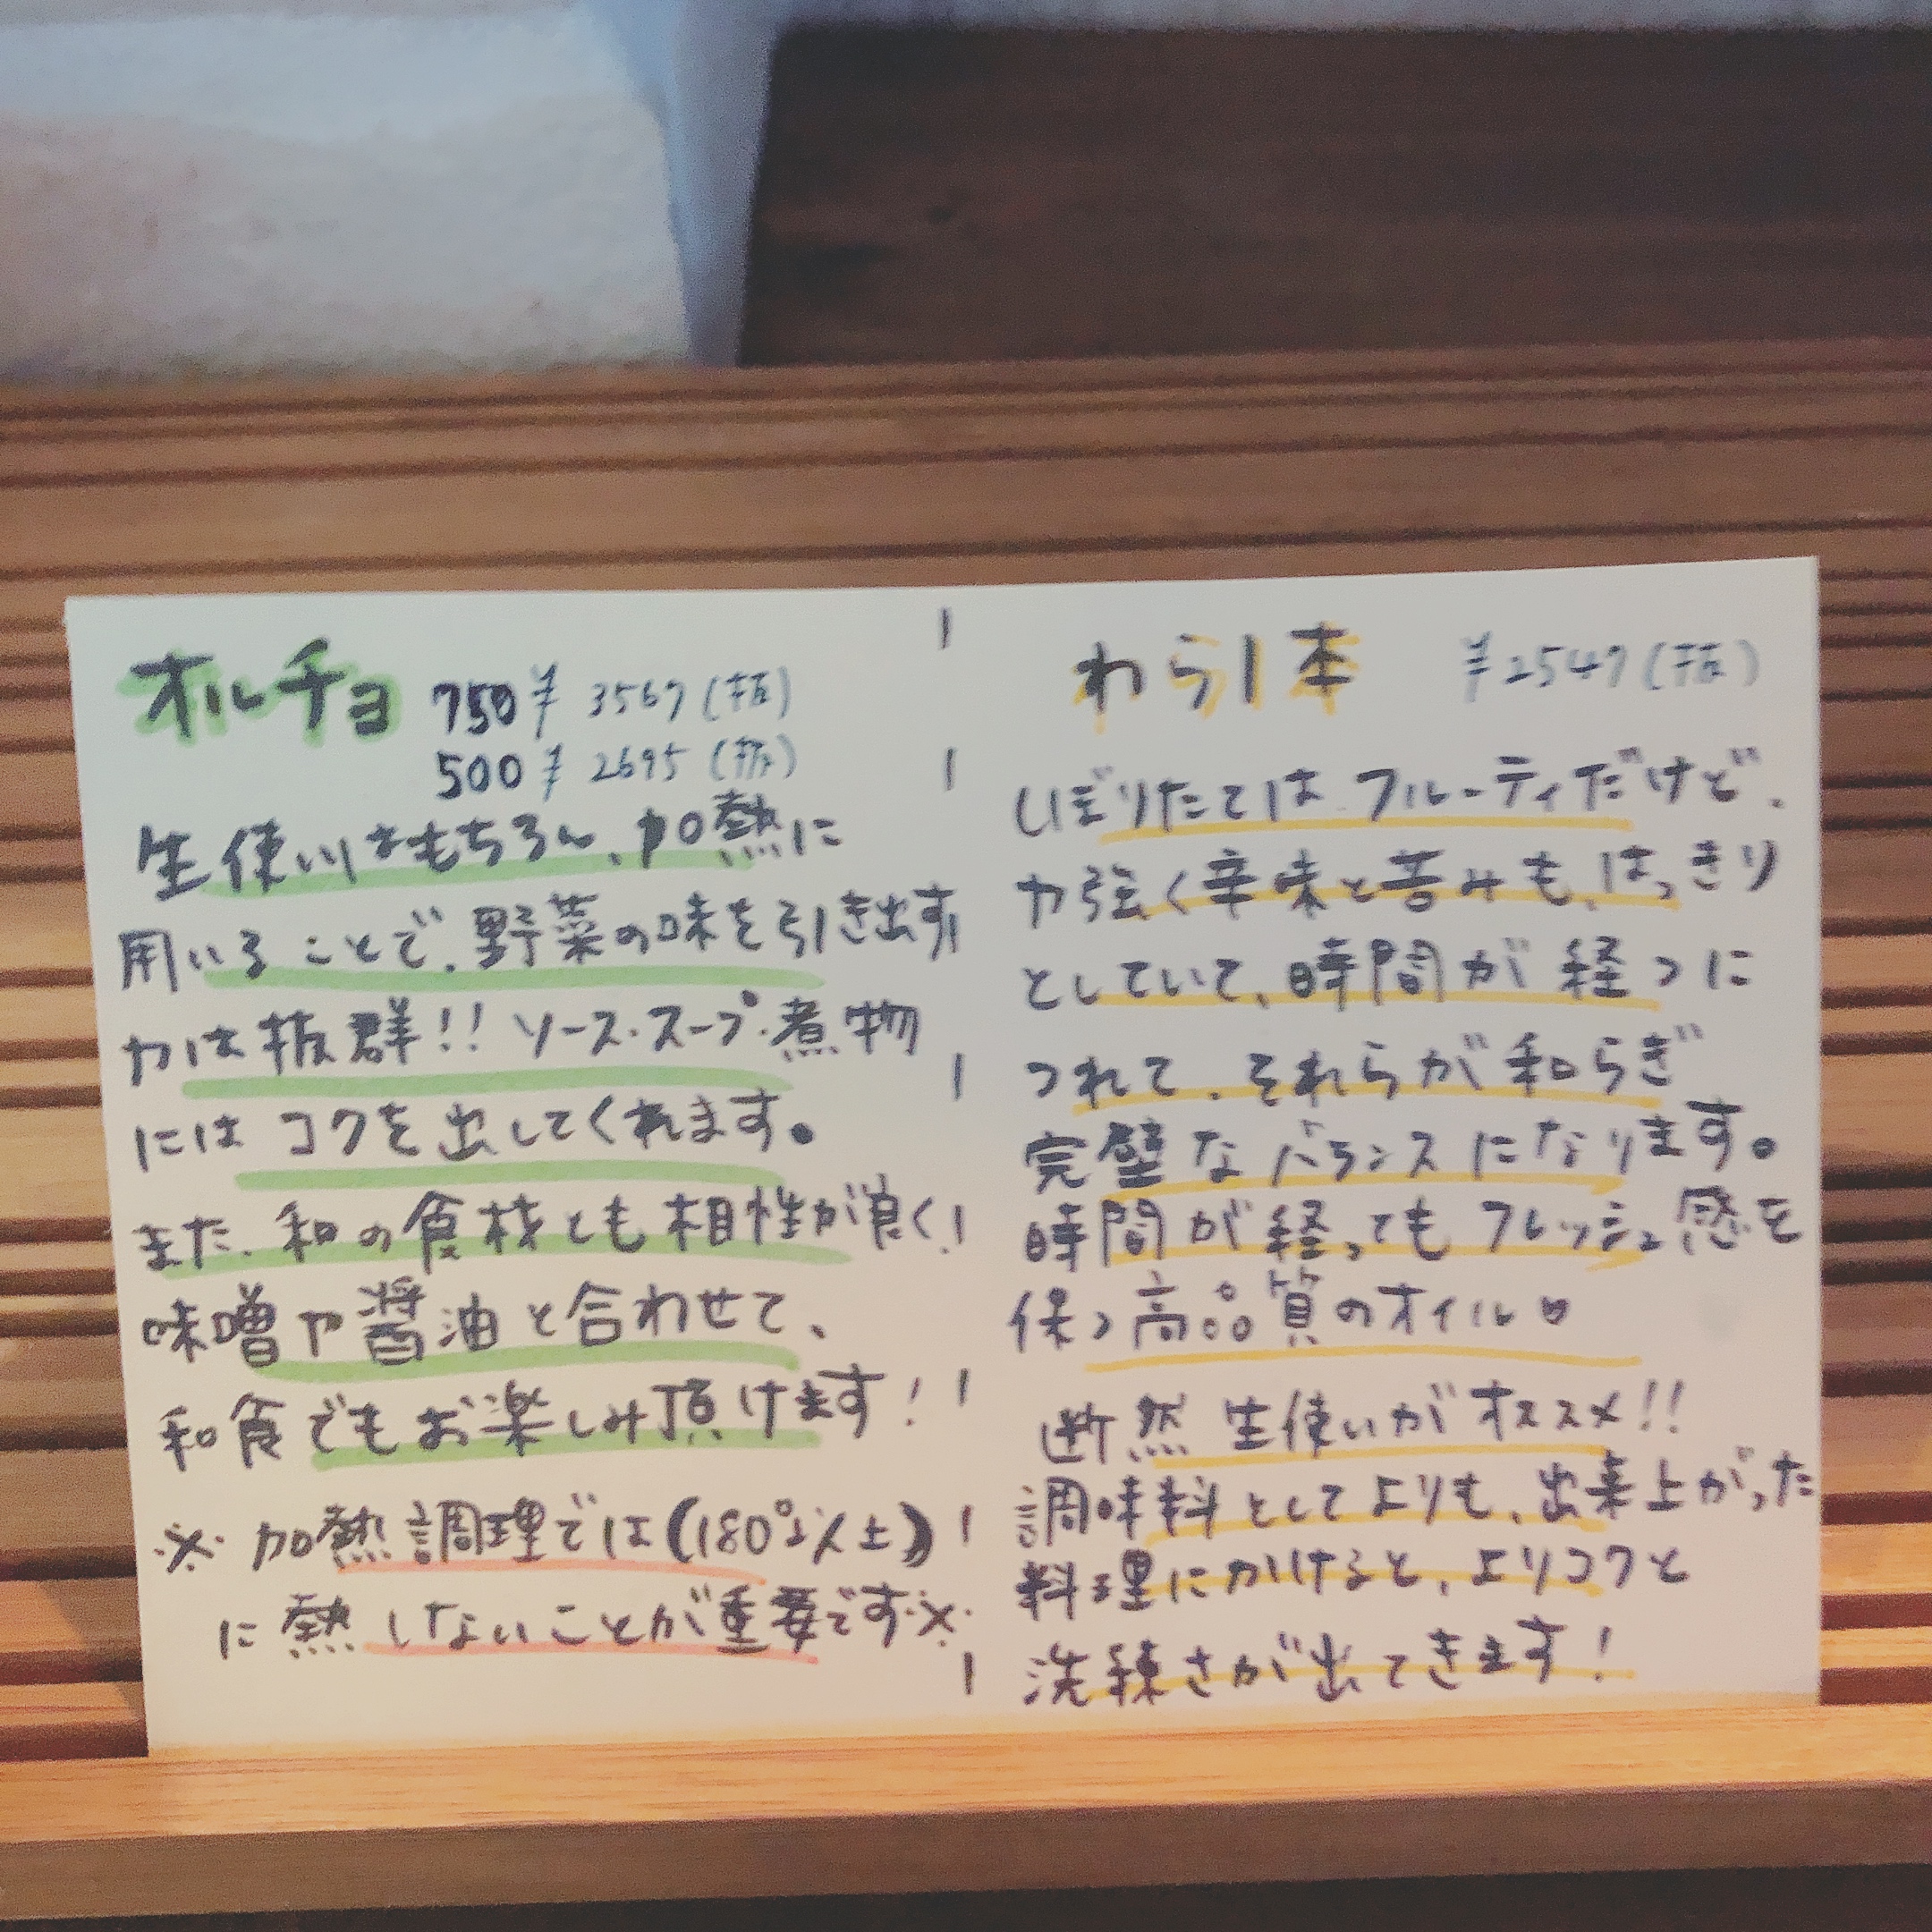 オルチョ 750 ¥ 3567 (抜)
500 ¥ 2695 (抜)
生使いはもちろん、加熱に
用いることで、野菜の味を引き出す
力は抜群!! ソース・スープ・煮物
にはコクを出してくれます。
また、和の食材とも相性が良く!
味噌や醤油と合わせて、
和食でもお楽しみ頂けます!
※ 加熱調理では(180°以上)
に熱しないことが重要です※
わら1本 ¥2547(抜)
しぼりたては フルーティだけど、
力強く辛味と苦みも、はっきり
としていて、時間が経つに
つれて、それらが和らぎ
完璧なバランスになります。
時間が経ってもフレッシュ感を
保つ高品質のオイル
断然 生使いがオススメ!!
調味料としてよりも、出来上がった
料理にかけると、よりコクと
洗練さが出てきます!